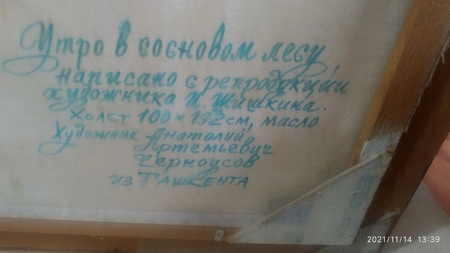 Утро в сосновом лесу,
написано с репродукции
художника И. Шишкина.
Холст 100×192 см, масло
Художник Анатолий
Артемьевич
Черноусов
из Ташкента
2021/11/14 13:39